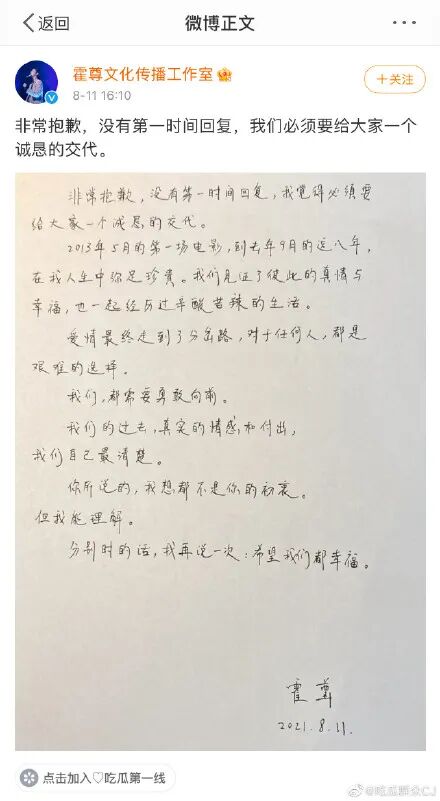 返回
微博正文
霍尊文化传播工作室
8-11 16:10
+关注
非常抱歉，没有第一时间回复，我们必须要给大家一个
诚恳的交代。
非常抱歉，没有第一时间回复，我觉得必须要
给大家一个诚恳的交代。
2013年5月的第一场电影，到去年9月的这八年，
在我人生中弥足珍贵。我们见证了彼此的真情与
幸福，也一起经历过辛酸苦辣的生活。
爱情最终走到了分岔路，对于任何人，都是
艰难的选择。
我们，都需要勇敢向前。
我们的过去，真实的情感和付出，
我们自己最清楚。
你所说的，我想都不是你的初衷。
但我能理解。
分别时的话，我再说一次：希望我们都幸福。
霍尊
2021.8.11.
点击加入♡吃瓜第一线
@吃瓜群众CJ